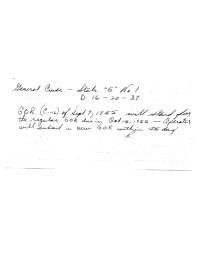 General Crude - State "G" No 1
D 16 - 20 - 37
GOR (C-116) of Sept 9, 1955 will stand for
the regular GOR due in Oct 15, 1955 — Operator
will submit a new GOR within 45 days